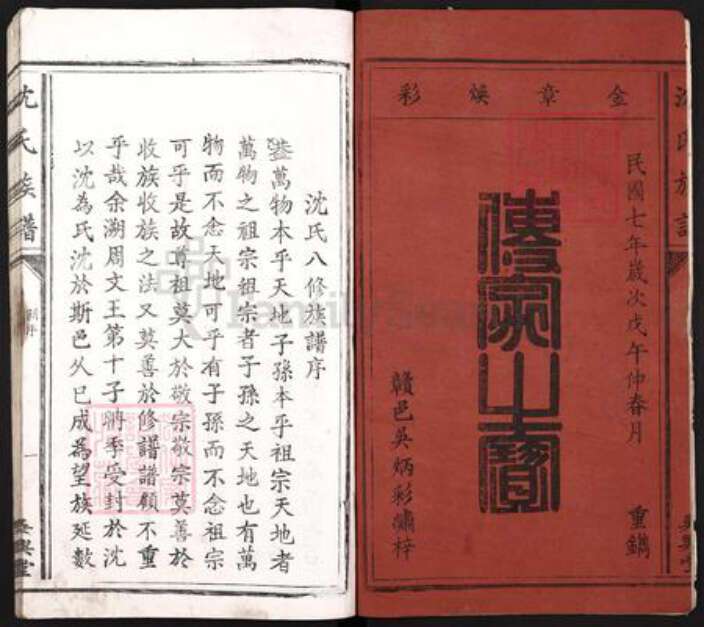 金章煥彩
民國七年歲次戊午仲春月 重鐫
傳家之寶
贛邑吳炳彩繡梓
沈氏族譜
沈氏八修族譜序
蓋萬物本乎天地子孫本乎祖宗天地者
萬物之祖宗祖宗者子孫之天地也有萬
物而不念天地可乎有子孫而不念祖宗
可乎是故尊祖莫大於敬宗敬宗莫善於
收族收族之法又莫善於修譜譜顧不重
乎哉余溯周文王第十子聃季受封於沈
以沈為氏沈於斯邑久已成為望族延數
沈氏族譜
序
一